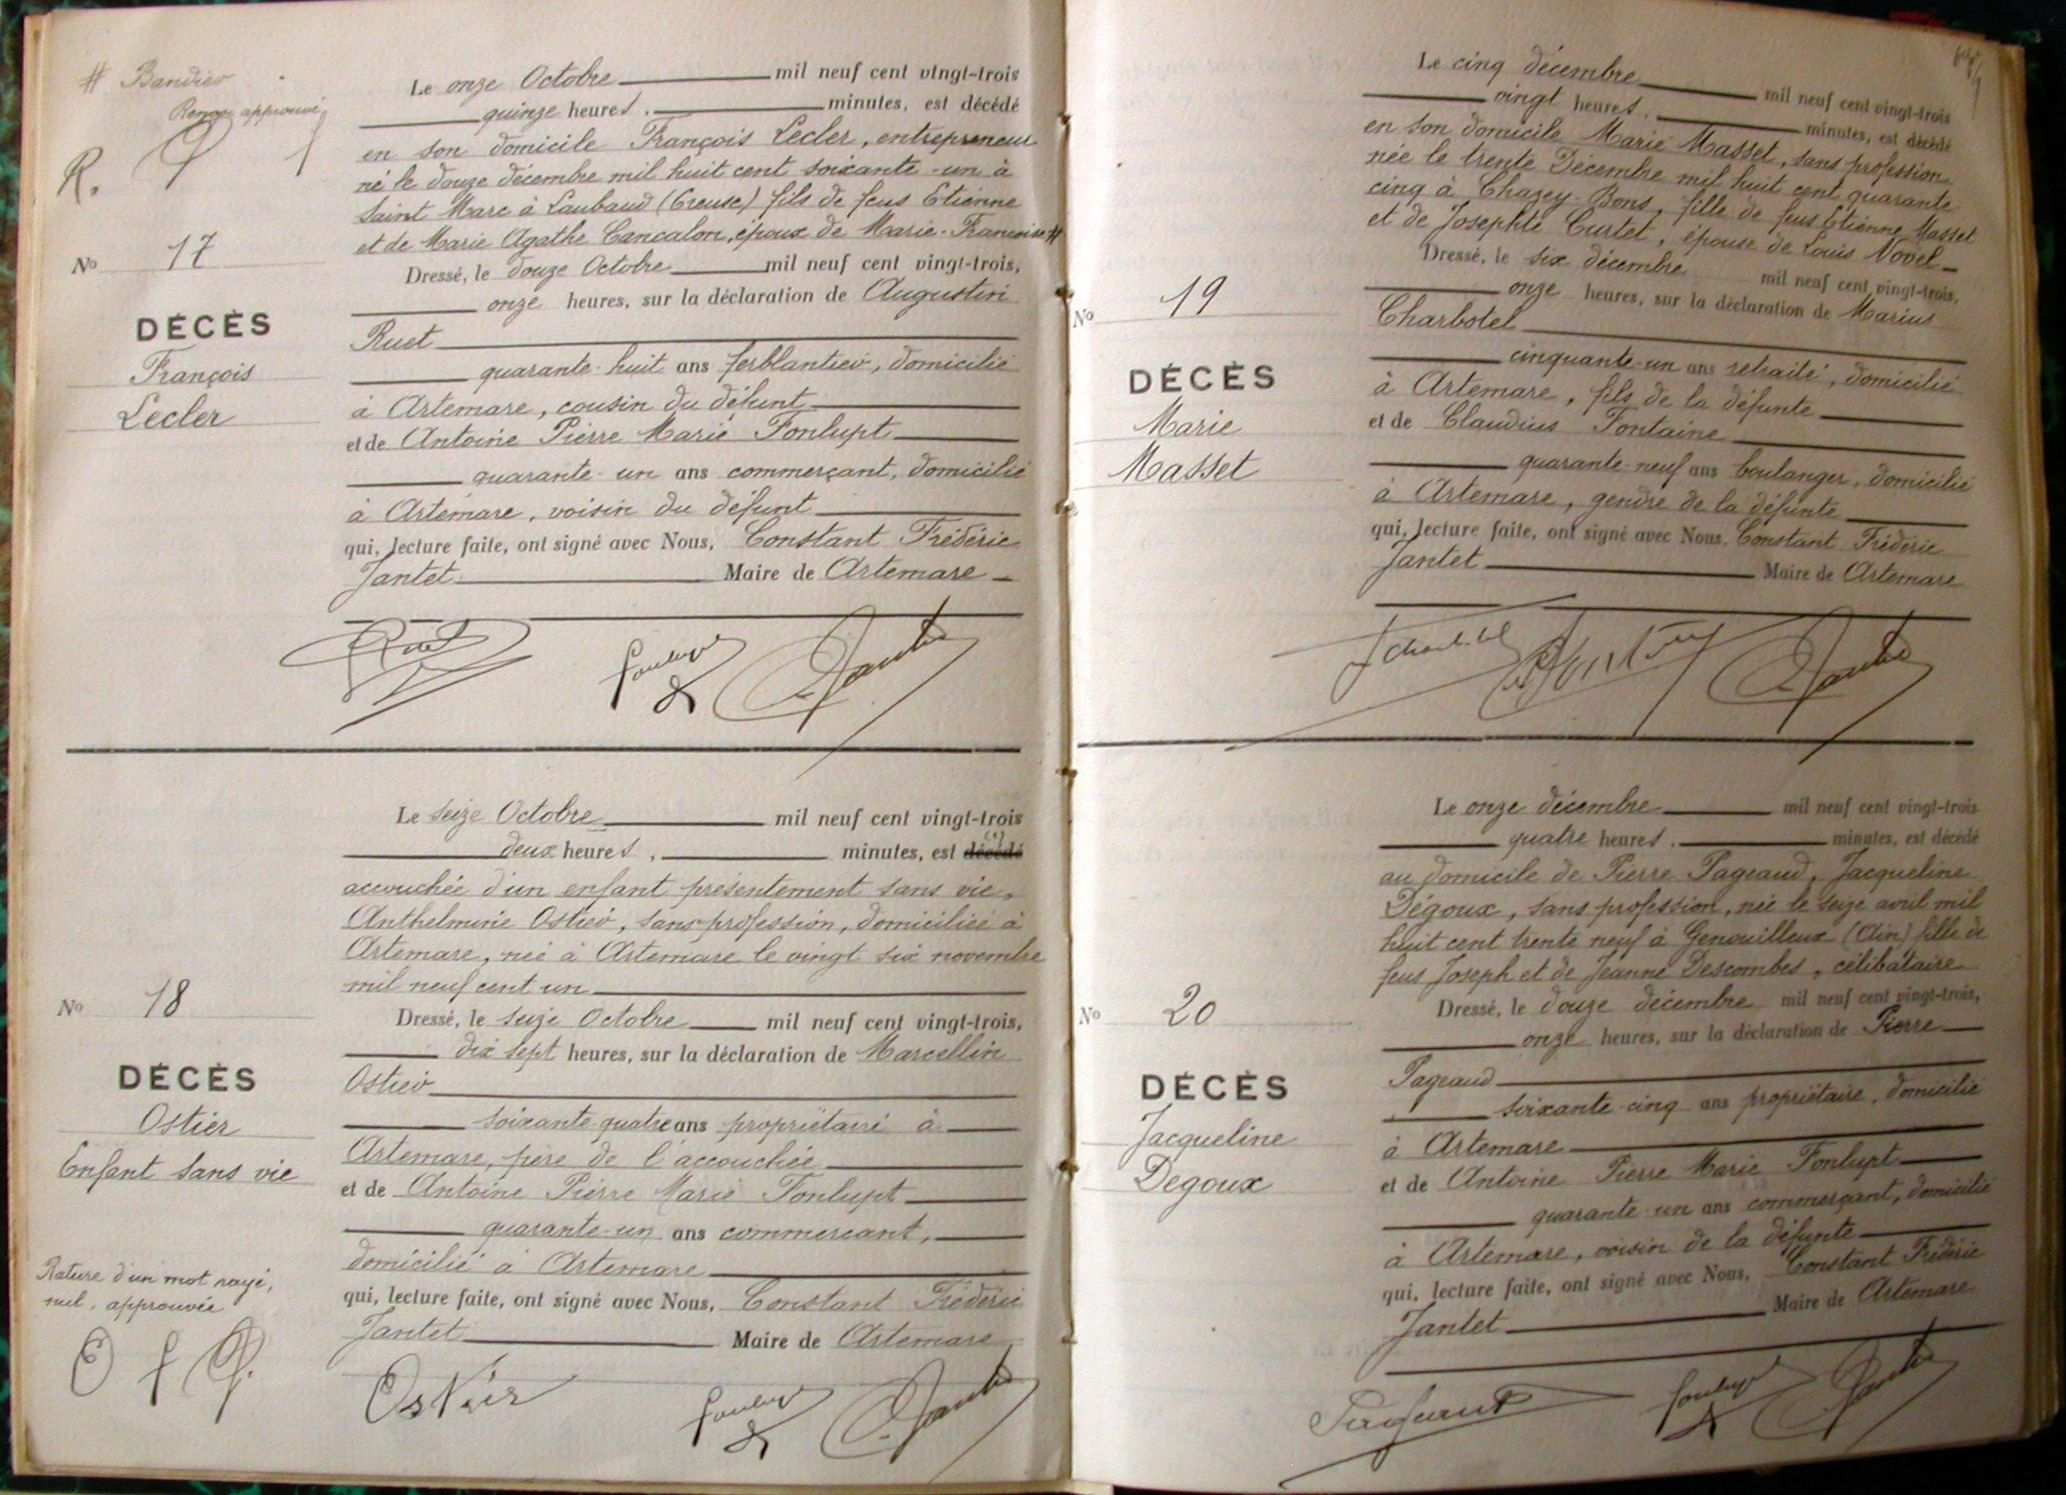 # Bandier
Renvoi approuvé
R.
Le onze Octobre mil neuf cent vingt-trois
quinze heures, minutes, est décédé
en son domicile François Lecler, entrepreneur
né le douze décembre mil huit cent soixante-un à
Saint Marc à Loubaud (Creuse) fils de feus Etienne
et de Marie Agathe Cancalon, époux de Marie-Francoise #
No 17
DÉCÈS
François
Lecler
Dressé, le douze Octobre mil neuf cent vingt-trois,
onze heures, sur la déclaration de Augustin
Ruet
quarante-huit ans ferblantier, domicilié
à Artemare, cousin du défunt
et de Antoine Pierre Marie Fonlupt
quarante-un ans commerçant, domicilié
à Artemare, voisin du défunt
qui, lecture faite, ont signé avec Nous, Constant Frédéric
Jantet Maire de Artemare
Ruet
Fonlupt
Jantet
Le seize Octobre mil neuf cent vingt-trois
deux heures, minutes, est décédé
accouchée d'un enfant présentement sans vie,
Anthelmine Ostier, sans profession, domiciliée à
Artemare, née à Artemare le vingt six novembre
mil neuf cent un
No 18
DÉCÈS
Ostier
Enfant sans vie
Rature d'un mot rayé,
nul, approuvée
O f J.
Dressé, le seize Octobre mil neuf cent vingt-trois,
dix sept heures, sur la déclaration de Marcellin
Ostier
soixante-quatre ans propriétaire à
Artemare, père de l'accouchée
et de Antoine Pierre Marie Fonlupt
quarante-un ans commercant,
domicilié à Artemare
qui, lecture faite, ont signé avec Nous, Constant Frédéric
Jantet Maire de Artemare
Ostier
Fonlupt
Jantet
Le cinq décembre mil neuf cent vingt-trois
vingt heures, minutes, est décédé
en son domicile Marie Masset, sans profession
née le trente Décembre mil huit cent quarante
cinq à Chazey-Bons, fille de feus Etienne Masset
et de Josephte Curtet, épouse de Louis Novel
No 19
DÉCÈS
Marie
Masset
Dressé, le six décembre mil neuf cent vingt-trois,
onze heures, sur la déclaration de Marius
Charbotel
cinquante-un ans retraité, domicilié
à Artemare, fils de la défunte
et de Claudius Fontaine
quarante-neuf ans boulanger, domicilié
à Artemare, gendre de la défunte
qui, lecture faite, ont signé avec Nous, Constant Frédéric
Jantet Maire de Artemare
Jantet
Le onze décembre mil neuf cent vingt-trois
quatre heures, minutes, est décédé
au domicile de Pierre Pageaud, Jacqueline
Dégoux, sans profession, née le seize avril mil
huit cent trente neuf à Genouilleux (Ain) fille de
feus Joseph et de Jeanne Descombes, célibataire
No 20
DÉCÈS
Jacqueline
Degoux
Dressé, le douze décembre mil neuf cent vingt-trois,
onze heures, sur la déclaration de Pierre
Pageaud
soixante-cinq ans propriétaire, domicilié
à Artemare
et de Antoine Pierre Marie Fonlupt
quarante-un ans commerçant, domicilié
à Artemare, voisin de la défunte
qui, lecture faite, ont signé avec Nous, Constant Frédéric
Jantet Maire de Artemare
Fonlupt
Jantet